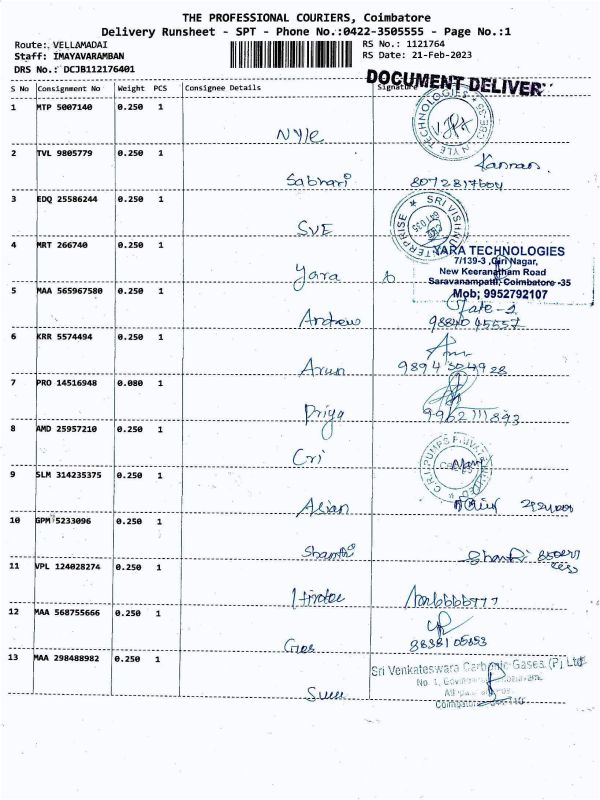 THE PROFESSIONAL COURIERS, Coimbatore
Delivery Runsheet - SPT - Phone No.:0422-3505555 - Page No.:1
Route: VELLAMADAI RS No.: 1121764
Staff: IMAYAVARAMBAN RS Date: 21-Feb-2023
DRS No.: DCJB112176401
DOCUMENT DELIVER
S No Consignment No Weight PCS Consignee Details Signature
1 MTP 5007140 0.250 1
NYLE TECHNOLOGIES
Nyle
2 TVL 9805779 0.250 1
Kannan
Sabhari 8072817604
3 EDQ 25586244 0.250 1
SRI VISHNU ENTERPRISE
SVE
4 MRT 266740 0.250 1
YARA TECHNOLOGIES
7/139-3 ,Giri Nagar,
New Keeranatham Road
Yara Saravanampatti, Coimbatore -35
5 MAA 565967580 0.250 1
Mob; 9952792107
Andrew 9884045557
6 KRR 5574494 0.250 1
Arun 9894304928
7 PRO 14516948 0.080 1
Priya 9962111893
8 AMD 25957210 0.250 1
C.R.I. PUMPS PRIVATE LIMITED
Cri
9 SLM 314235375 0.250 1
Asian
10 GPM 5233096 0.250 1
Shanthi Shanthi
11 VPL 124028274 0.250 1
12 MAA 568755666 0.250 1
8838105853
13 MAA 298488982 0.250 1
Sri Venkateswara Carbonic Gases (P) Ltd
No. 1,
Coimbatore